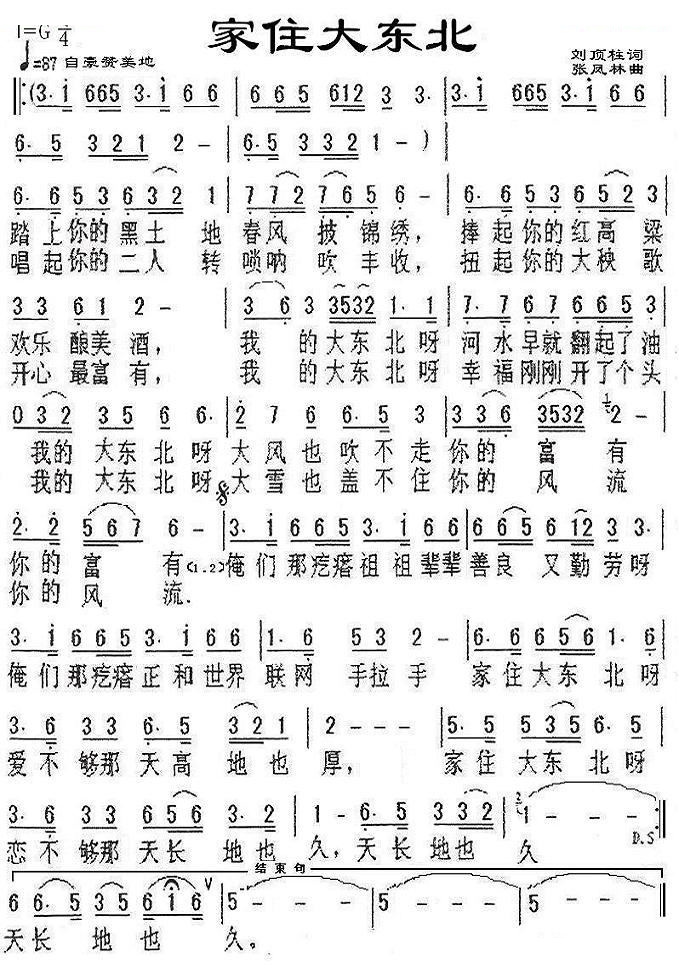 家住大东北
1=G 4/4
♩=87 自豪赞美地
刘顶柱词
张凤林曲
‖:(3· i 665 3· i 6 6 | 6 6 5 612 3 3· | 3· i 665 3· i 6 6 |
6· 5 321 2 - | 6· 5 3321 1 - ) |
6· 6 5 3 6 3 2 1 | 7 7 2 7 6 5 6 - | 6· 5 3 5 6 5 2 3 |
踏上你的黑土地春风披锦绣，捧起你的红高粱
唱起你的二人转唢呐吹丰收，扭起你的大秧歌
3 3 6 1 2 - | 3 6 3 3532 1· 1 | 7· 7 6 7 6 6 5 3 |
欢乐酿美酒，我的大东北呀河水早就翻起了油
开心最富有，我的大东北呀幸福刚刚开了个头
0 3 2 3 5 6 6· | 2 7 6 6· 5 3 | 3 3 6 3532 2 - |
我的大东北呀大风也吹不走你的富有
我的大东北呀大雪也盖不住你的风流
2· 2 5 6 7 6 - | 3· i 6 6 5 3· i 6 6 | 6· 5 6 5 6 12 3 3· |
你的富有(1.2)俺们那疙瘩祖祖辈辈善良又勤劳呀
你的风流.
3· i 6 6 5 3· i 6 6 | 1· 6 5 3 2 - | 6· 6 6 5 6 1· 6 |
俺们那疙瘩正和世界联网手拉手家住大东北呀
3· 6 3 3 6· 5 3 2 1 | 2 - - - | 5· 5 5 3 5 6· 5 |
爱不够那天高地也厚，家住大东北呀
3· 6 3 3 6 5 6 3· 2 | 1 - 6· 5 3 3 2 | 1 - - - :‖
D.S
恋不够那天长地也久，天长地也久
结束句
6 6· 5 3 5 6 i 6 ∨ | 5 - - - | 5 - - - | 5 - - - ‖
天长地也久。